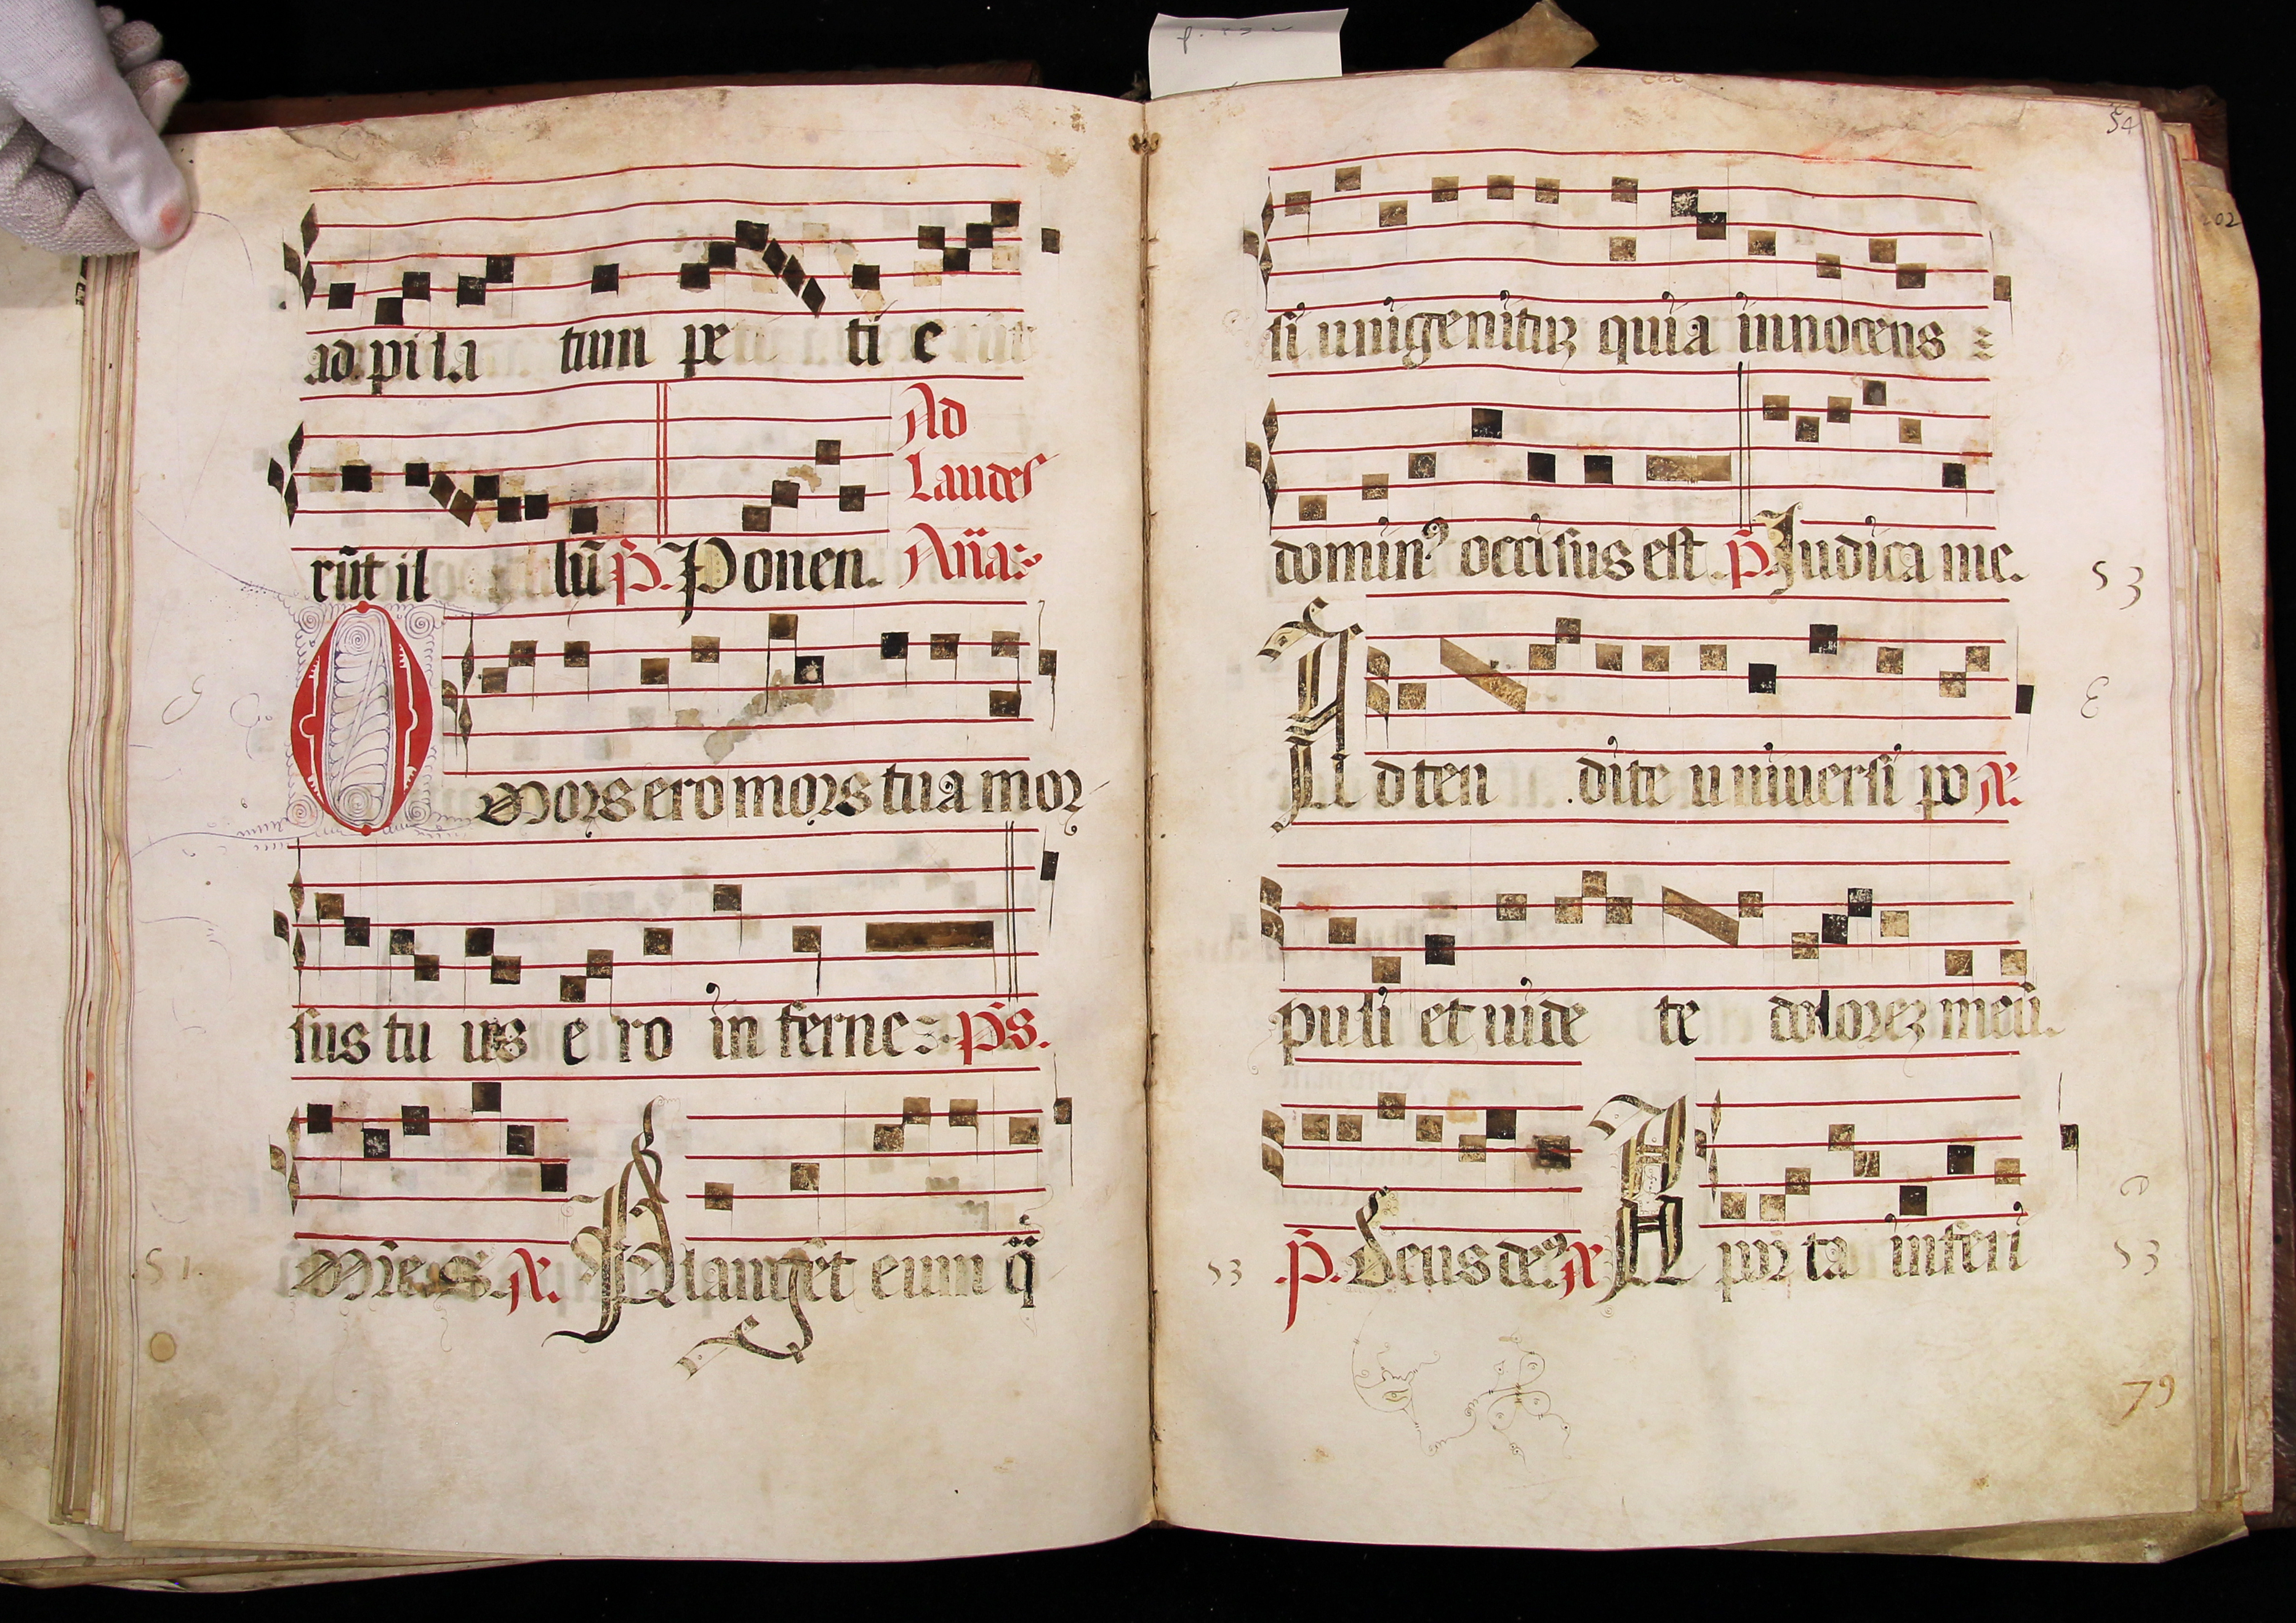 ad pila tum pe ti e
Ad
Laudes
rūt il lū P. Ponen. Añas
O Mors ero mors tua mor
sus tu us e ro in ferne Ps.
Mise. Planget eum q̄
51.
54
202
si unigenituʒ quia innocens
dominꝰ occisus est. P. Iudica me.
53
Adten dite universi po
puli et uide te doloreʒ meū.
53 P. Deus deꝰ A por ta inferi
53
79